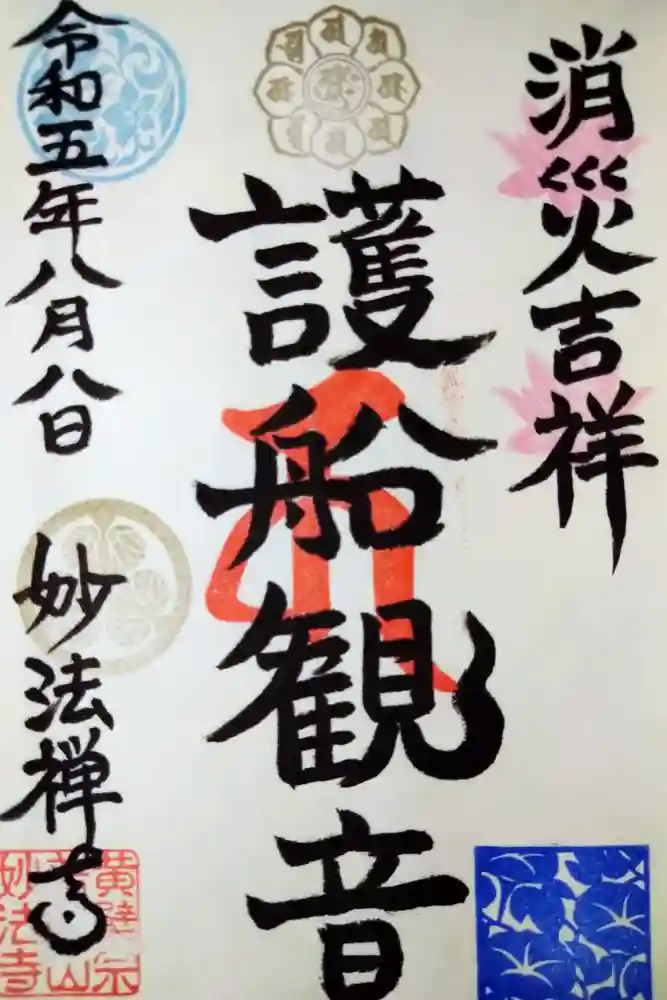 消災吉祥
護船観音
令和五年八月八日
妙法禅寺
黄檗宗
妙法寺